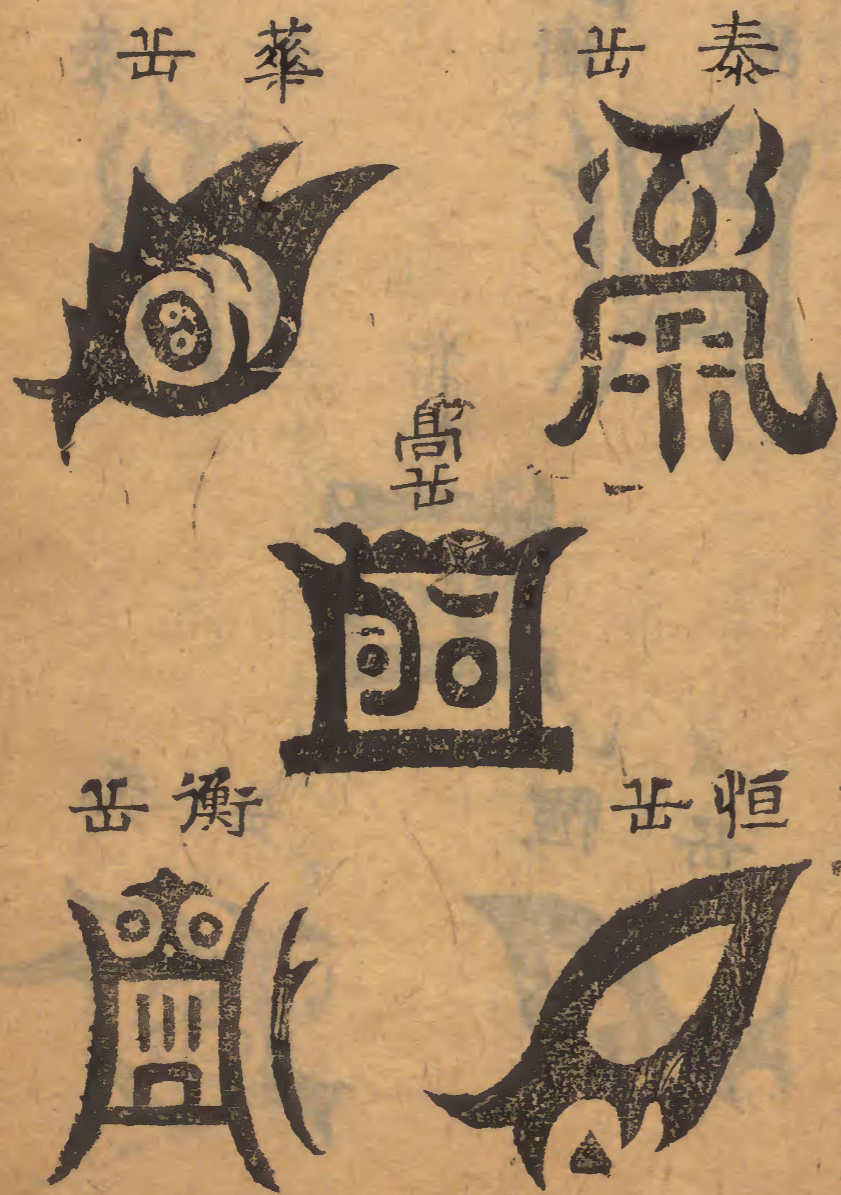 泰岳
華岳
嵩岳
恒岳
衡岳